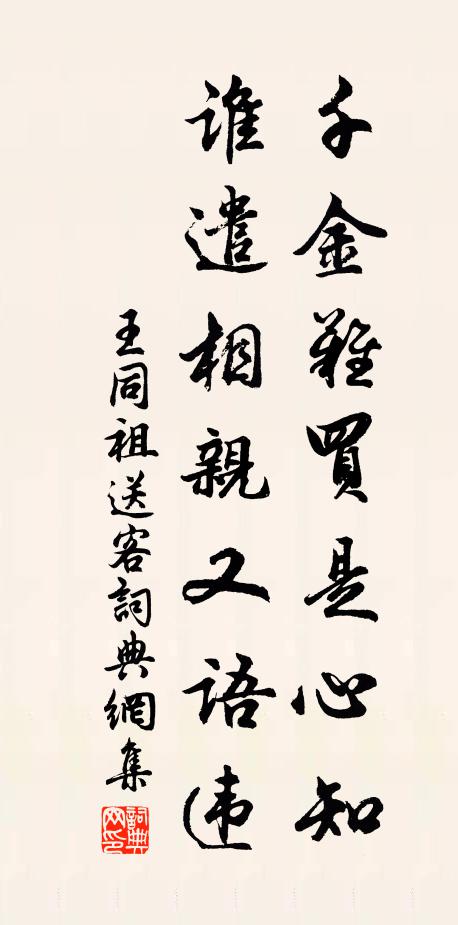 千金難買是心知
誰遣相親又語违
王同祖送客詞典網集
詞典网印